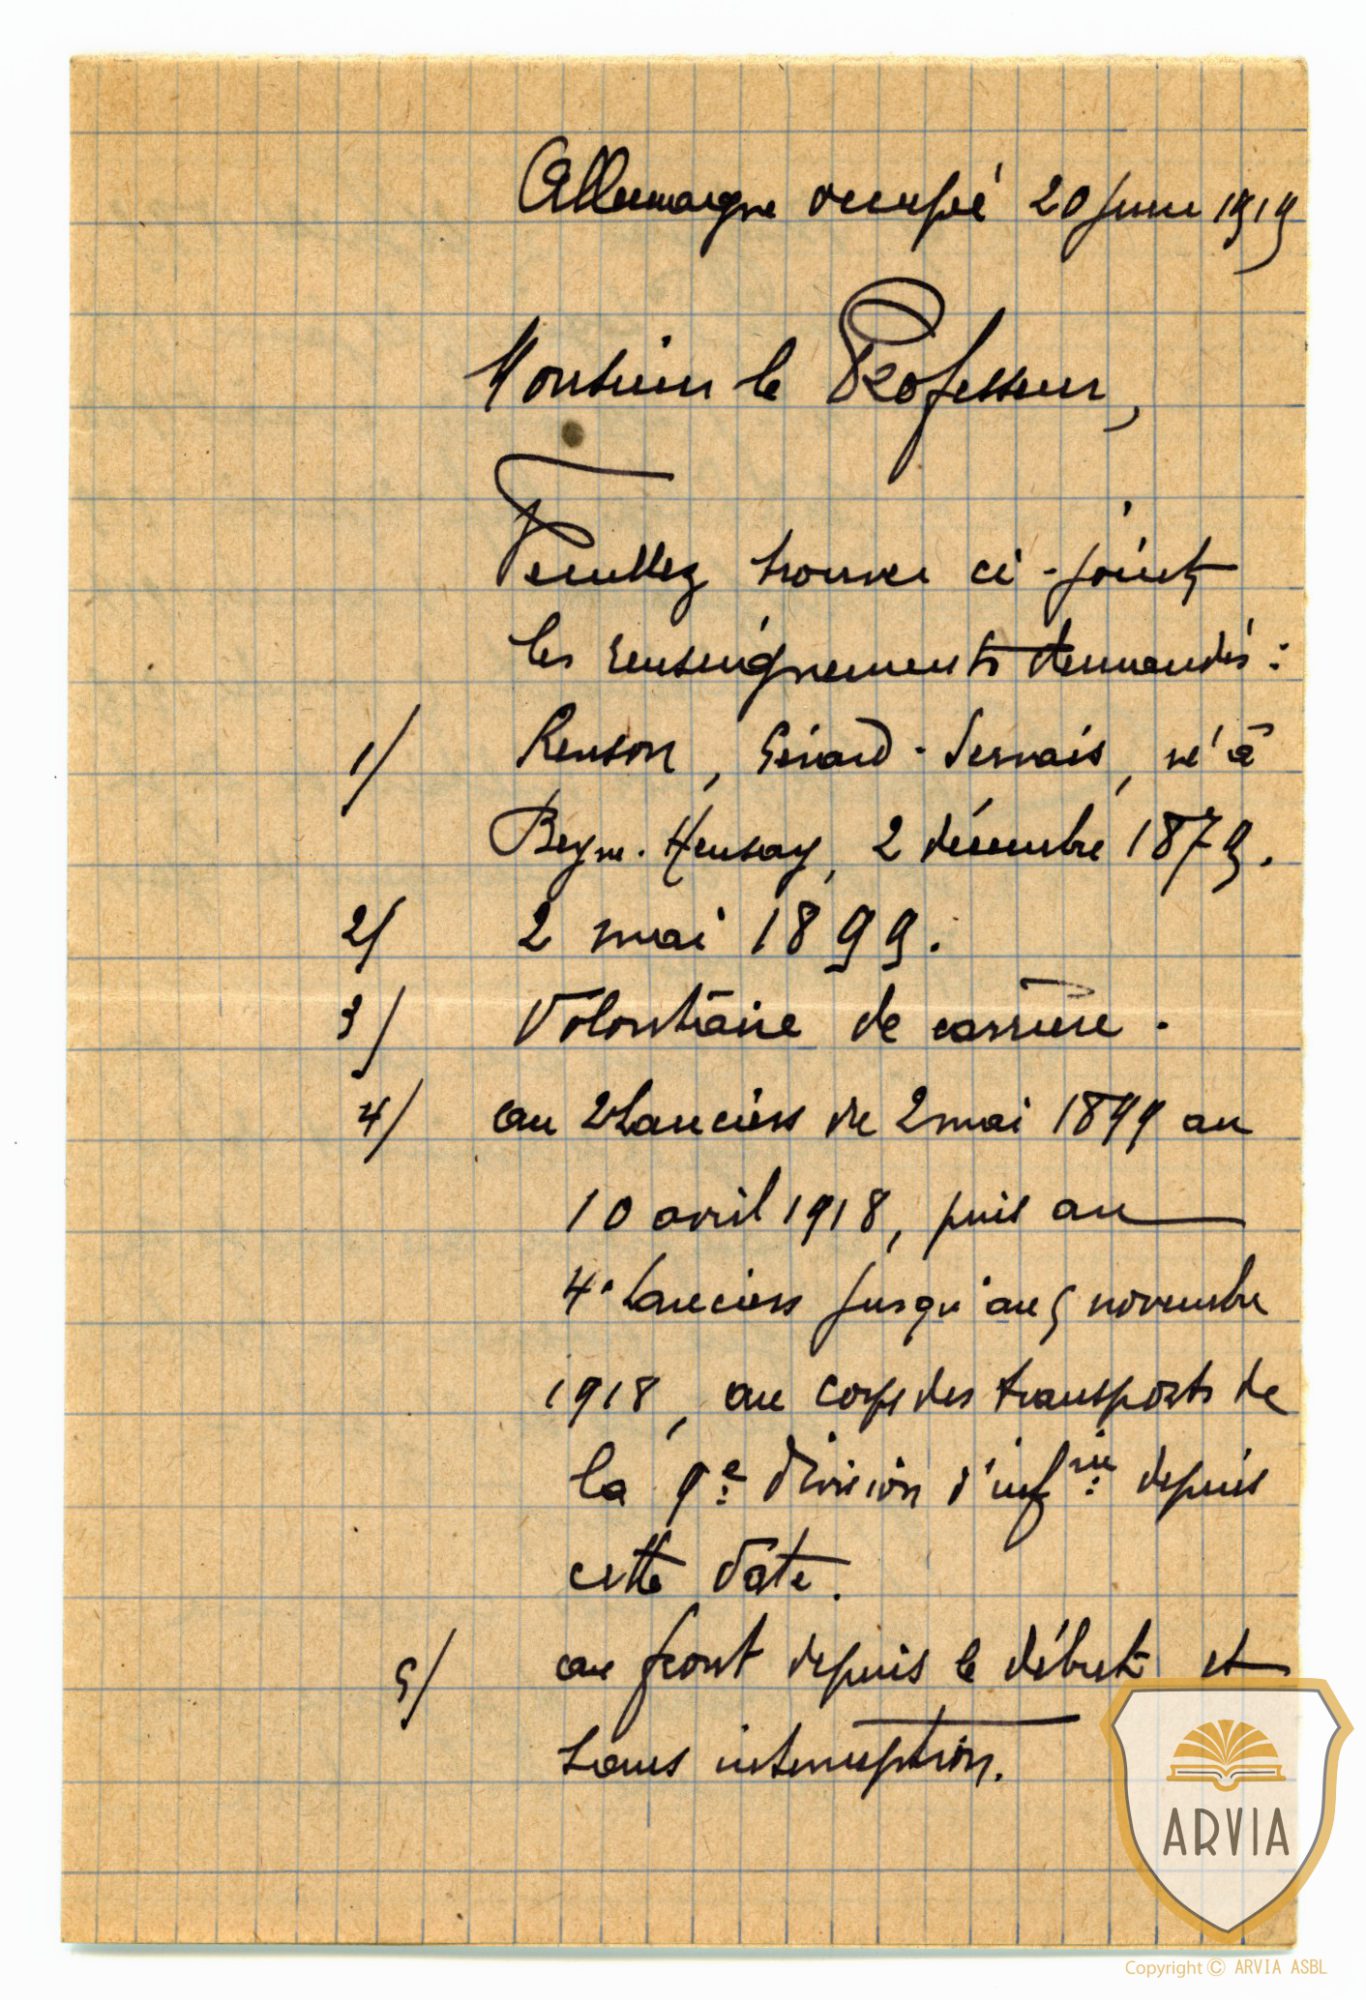 Allemagne occupée 20 juin 1919
Monsieur le Professeur,
Veuillez trouver ci-joint
les renseignements demandés :
1/ Renson, Gérard-Servais, né à
Beyne-Heusay, 2 décembre 1879.
2/ 2 mai 1899.
3/ Volontaire de carrière.
4/ au 2 Lanciers de 2 mai 1899 au
10 avril 1918, puis au
4e Lanciers jusqu'au 5 novembre
1918, au corps des transports de
la 9e division d'infrie depuis
cette date.
5/ au front depuis le début et
sans interruption.
ARVIA
Copyright © ARVIA ASBL